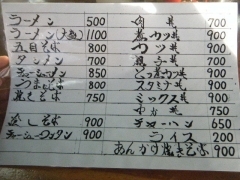 ラーメン 500
ラーメン(大盛) 1100
五目そば 800
タンメン 700
チャーシューメン 850
うま煮そば 800
焼きそば 750
冷しそば 900
チャーシューワンタン 900
肉丼 700
煮カツ丼 900
カツ丼 900
親子丼 700
とっ カツ丼 900
スタミナ丼 900
ミックス丼 900
中丼 750
チャーハン 650
ライス 200
あんかけ焼きそば 900